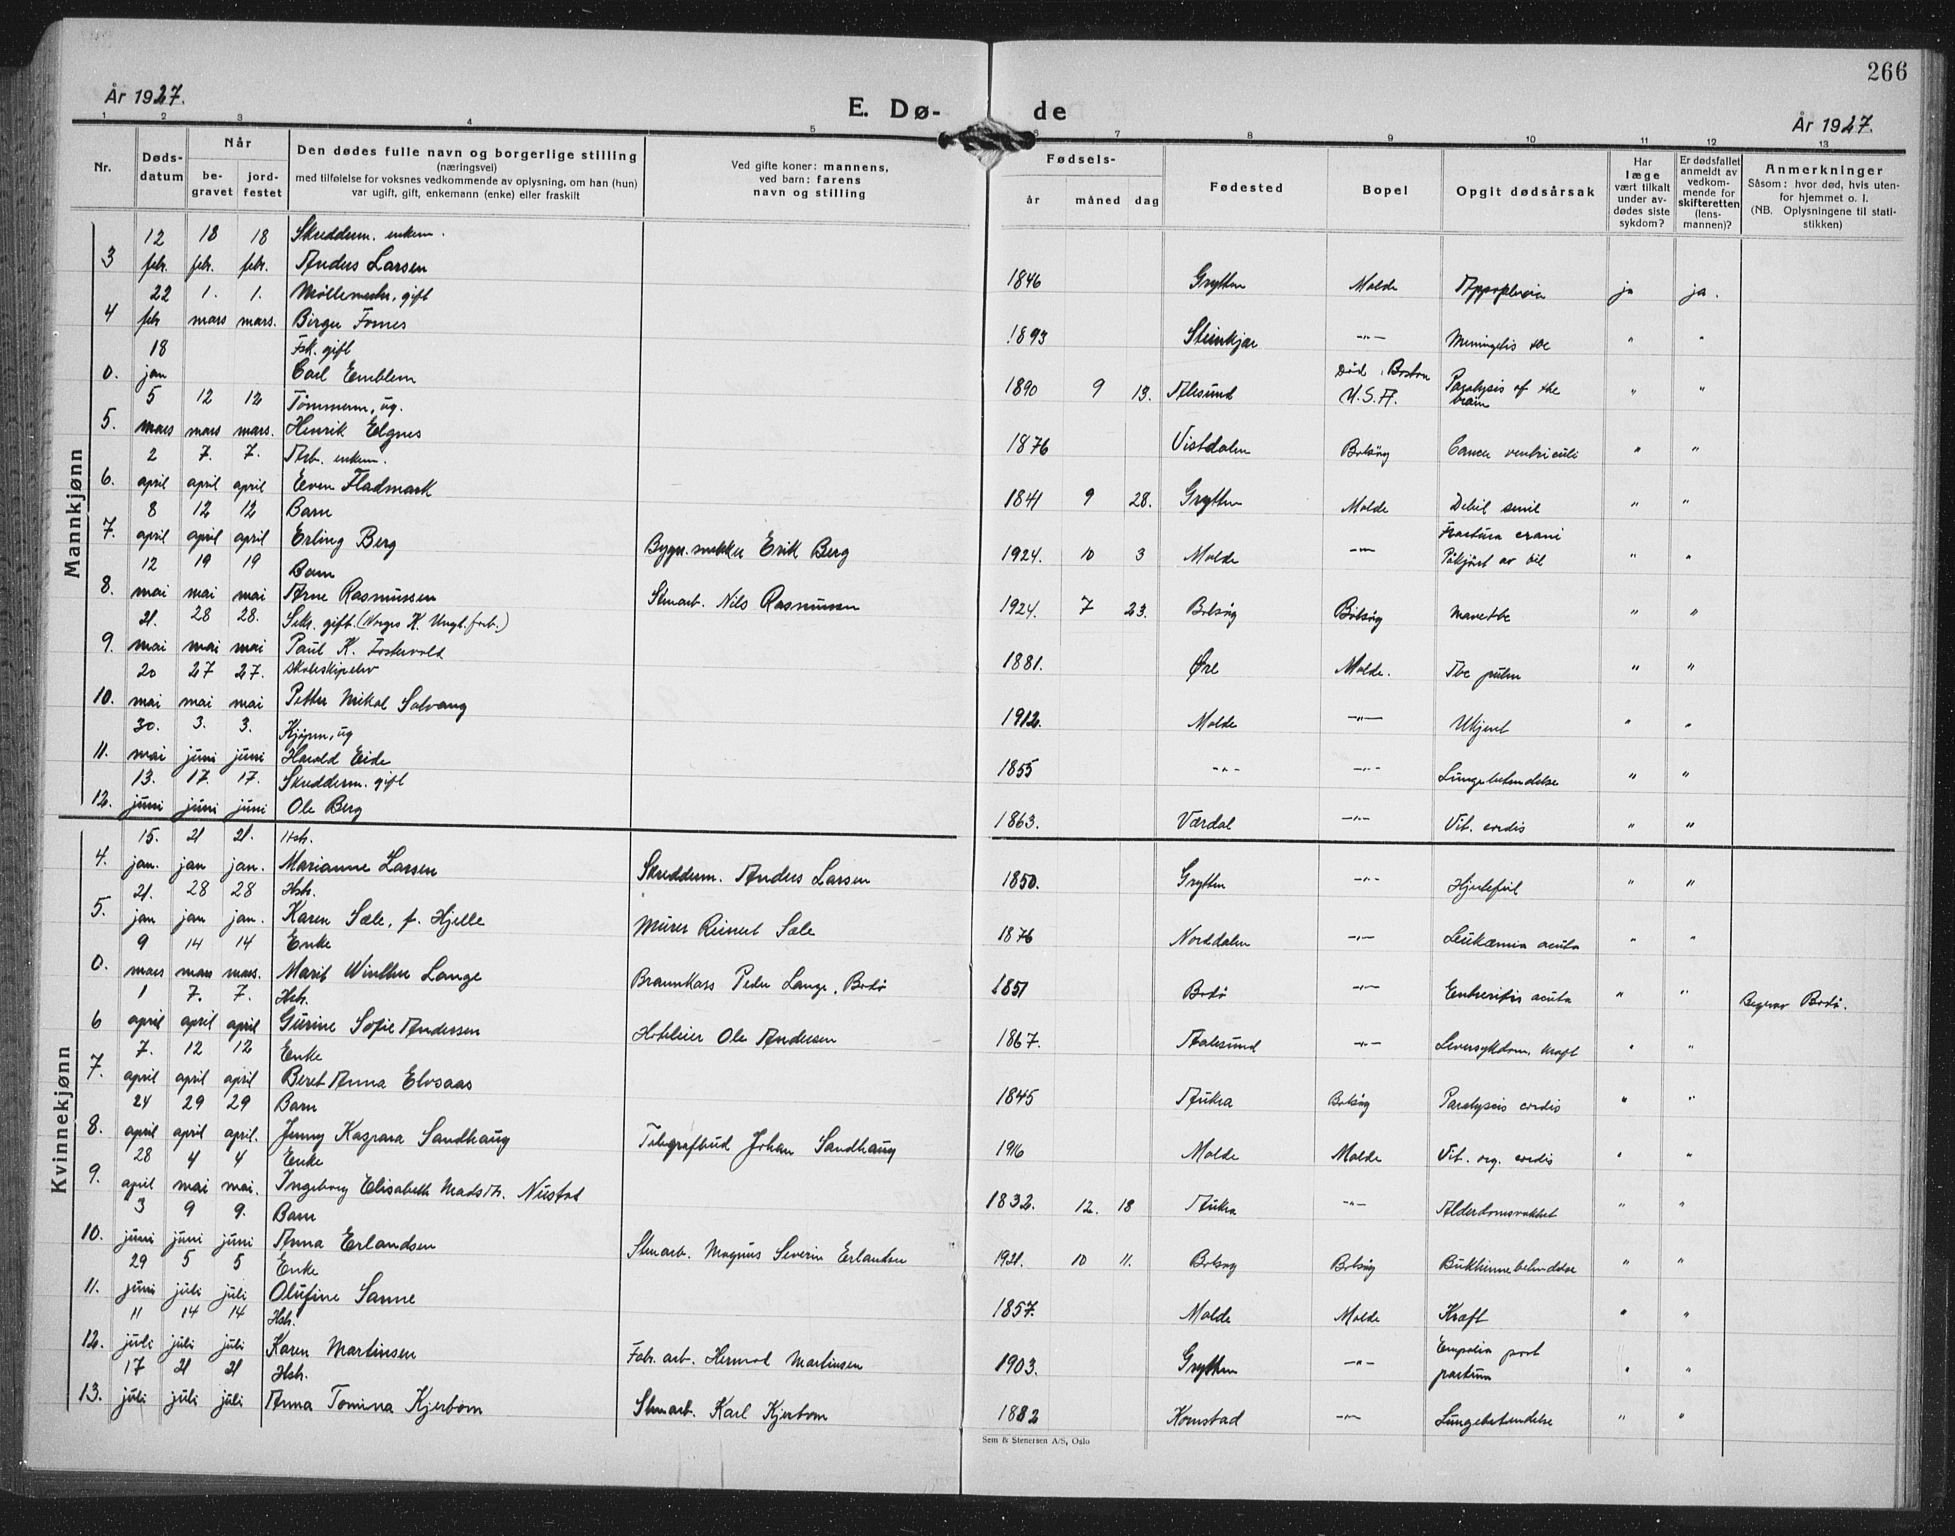 266
År 1927.
E. Dø-
de
År 1927.
1 2 3 4 5 6 7 8 9 10 11 12 13
Nr.
Døds-
datum
Når
be-
gravet
jord-
festet
Den dødes fulle navn og borgerlige stilling
(næringsvei)
med tilføielse for voksnes vedkommende av oplysning, om han (hun)
var ugift, gift, enkemann (enke) eller fraskilt
Ved gifte koner: mannens,
ved barn: farens
navn og stilling
Fødsels-
år måned dag
Fødested
Bopel
Opgit dødsårsak
Har
læge
vært tilkalt
under av-
dødes siste
sykdom?
Er dødsfallet
anmeldt av
vedkom-
mende for
skifteretten
(lens-
mannen)?
Anmerkninger
Såsom: hvor død, hvis uten-
for hjemmet o. l.
(NB. Oplysningene til stati-
stikken)
Mannkjønn
12 18 18 Skredderm. enkem.
3 febr. febr. febr. Anders Larsen 1846 Grytten Molde Appoplexia ja ja.
22 1. 1. gift
4 febr mars mars. Birger Fornes 1893 Steinkjær -"- Meningitis tbc " "
18 Fsk. gift
0. jan Carl Emblem 1890 9 13. Ålesund Død i Boston U.S.A. Paralysis of the brain " "
5 12 12 Tømmerm, ug.
5. mars mars mars. Henrik Elgnes 1876 Vistdalen Bolsøy Cancer ventriculi " "
2 7. 7. Arb. enkem.
6. april april april Even Fladmark 1841 9 28. Grytten Molde Debil senil " "
8 12 12 Barn
7. april april april Erling Berg Bygn.snekker Erik Berg 1924. 10 3 Molde -"- Fractura crani Påkjørt av bil " "
12 19 19 Barn
8. mai mai mai Arne Rasmussen Stenarb. Nils Rasmussen 1924. 7 23. Bolsøy Bolsøy mavetbc " "
21. 28 28. Sekr. gift. (Norges K. Ungl. forb.)
9. mai mai mai Paul K. Fostervold 1881. Øre Molde. Tbc pulm " "
20 27 27. skoleskipelev
10. mai mai mai Petter Mikal Solvang 1912. Molde -"- Ukjent " "
30. 3. 3. Kjøpm, ug
11. mai juni juni Harald Eide 1855 -"- -"- Lungebetendelse " "
13. 17. 17. Skredderm. gift
12. juni juni juni Ole Berg 1863. Værdal -"- Vit. cordis " "
Kvinnekjønn
15. 21 21. Hstr.
4. jan. jan jan. Marianne Larsen Skredderm. Anders Larsen 1850. Grytten -"- Hjertefeil " "
21. 28 28 Hstr.
5. jan jan jan. Karen Sæle, f. Hjelle Murer Reinert Sæle 1876 Norddalen -"- Leukæmia acuta " "
9 14 14 Enke
0. mars mars mars. Marit Winther Lange Brannkass Peder Lange, Bodø 1851 Bodø -"- acuta " " Begrav Bodø.
1 7. 7. Hstr.
6 april april april Gurine Sofie Andersen Hoteleier Ole Andersen 1867. Aalesund -"- Leversykdom, kraft " "
7. 12 12 Enke
7. april april april Beret Anna Elvsaas 1845 Aukra Bolsøy Paralysis cordis " "
24 29 29 Barn
8. april april april. Jenny Kaspara Sandhaug Telegrafbud Johan Sandhaug 1916 Molde Molde Vit. org. cordis " "
28 4 4 Enke
9. april mai mai. Ingeborg Elisabeth Madsdtr. Nustad 1832. 12. 18 Aukra -"- Alderdomssvakhet " "
3 9 9. Barn
10. juni juni juni Anna Erlandsen Stenarb. Magnus Severin Erlandsen 1921. 10 11. Bolsøy Bolsøy Bukhinnebetendelse " "
29 5 5 Enke
11. juni juli juli Olufine Sanne 1857. Molde Molde Kræft " "
11 14 14 Hstr.
12. juli juli juli Karen Martinsen Fabr. arb. Hermod Martinsen 1903. Grytten -"- post partum " "
17 21 21 Hstr.
13. juli juli juli Anna Tomina Kjerbom Stenarb. Karl Kjerbom 1882 Kornstad -"- Lungebetendelse " "
Sem & Stenersen A/S, Oslo